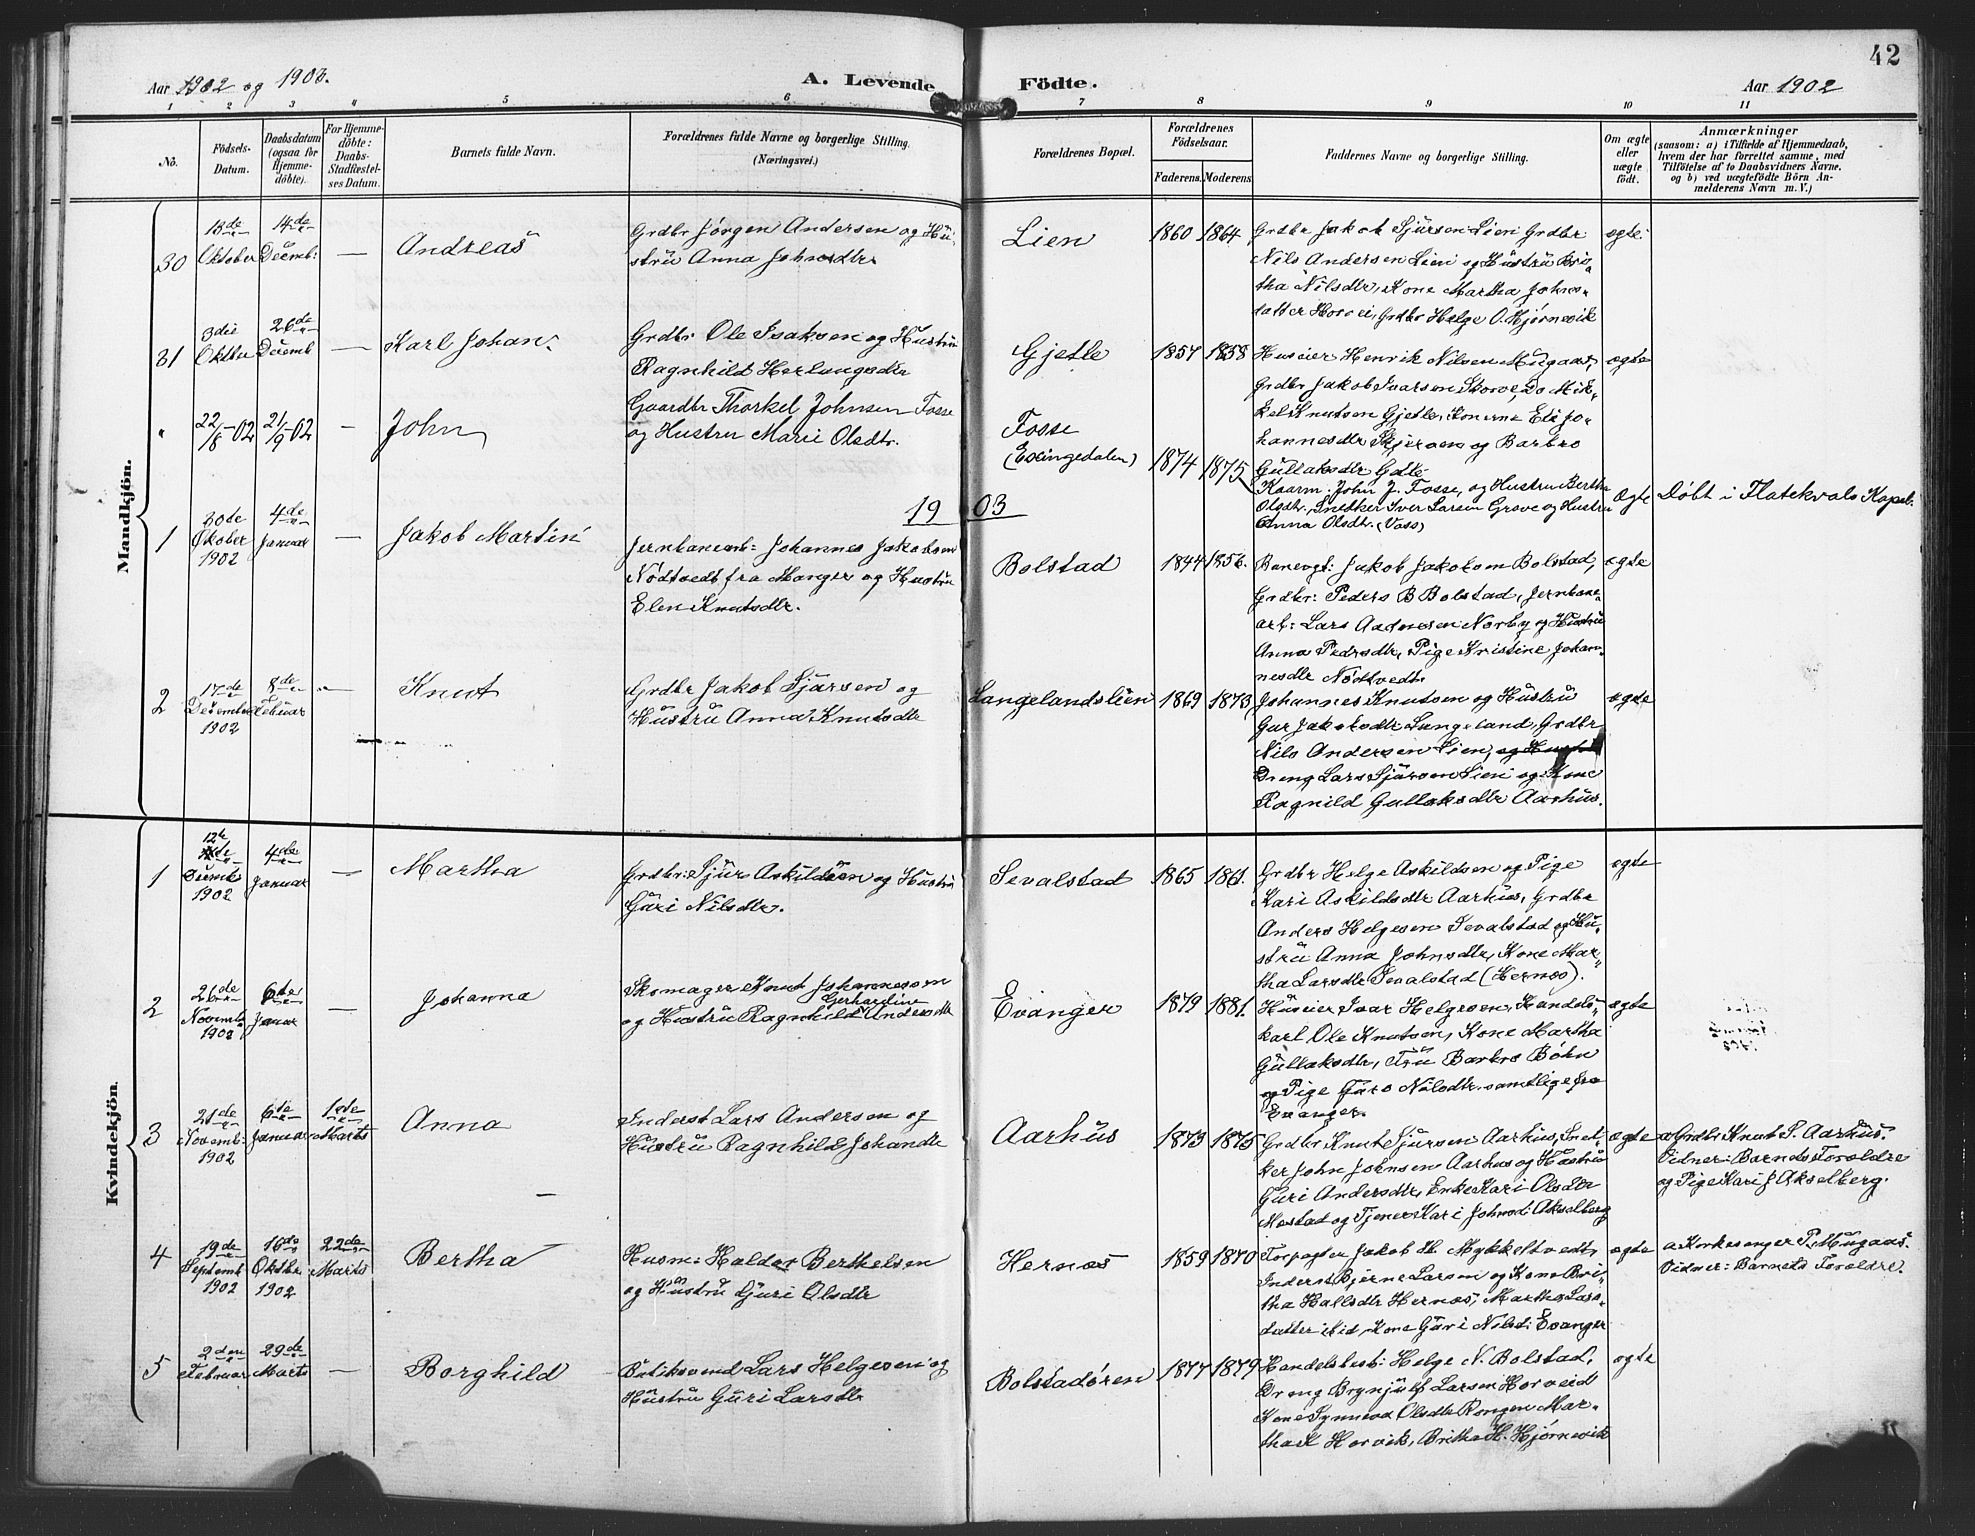 42
Aar 1902 og 1903.
A. Levende Födte.
Aar 1902
1 2 3 4 5 6 7 8 9 10 11
No.
Födsels-Datum.
Daabsdatum (ogsaa for Hjemme-döbte).
For Hjemme-döbte: Daabs-Stadfestel-ses Datum.
Barnets fulde Navn.
Forældrenes fulde Navne og borgerlige Stilling.
(Næringsvei.)
Forældrenes Bopæl.
Forældrenes Födselsaar.
Faderens. Moderens.
Faddernes Navne og borgerlige Stilling.
Om ægte eller uægte födt.
Anmærkninger
(saasom: a) i Tilfælde af Hjemmedaab,
hvem der har forrettet samme, med
Tilföielse af to Daabsvidners Navne.
og b) ved uægtefödte Börn An-
melderens Navn m. V.)
Mandkjön.
30
13de Oktober
14de Decemb:
—
Andreas
Grdbr Jørgen Andersen og Hu-
strü Anna Johnsdtr.
Lien
1860 1864
Grdbr Jakob Sjürsen Lien Grdbr
Nils Andersen Lien og Hüstrü Bri-
tha Nilsdtr, Kone Martha Johns-
datter Horvei, Grdbr Helge O. Hjørnevik
ægte
31
3die Oktbr
26de Decemb
—
Karl Johan.
Grdbr: Ole Isaksen og Hustrü
Ragnhild Herlungsdtr
Gjetle
1857 1858
Huseier Henrik Nilsen Mügaas,
Grdbr Jakob Ivarsen Skorve, Do Mik-
kel Knutsen Gjetle, Konerne Eli Jo-
hannesdtr Skjerven og Barbro
Güllaksdtr Gjetle
ægte
"
22/8-02
21/9-02
—
John
Gaardbr Thorkel Johnsen Fosse
og Hustru Marie Olsdtr.
Fosse
(Exingedalen)
1874 1875
Kaarm: John J. Fosse, og Hustru Bertha
Olsdtr, Snedker Iver Larsen Grove og Hustru
Anna Olsdtr. (Vass)
Ægte
Døbt i Flatekvals Kapel.
1903
1
30de Oktober 1902
4de Januar
—
Jakob Martin
Jernbanearb: Johannes Jakobsen
Nödtvedt fra Manger og Hustrü
Elen Knutsdtr.
Bolstad
1844 1856.
Banevgt: Jakob Jakobsen Bolstad,
Grdbr: Peders B Bolstad, Jernbane-
arb: Lars Aadnesen Norby og Hustrü
Anna Pedrsdtr, Pige Kristine Johan-
nesdtr Nödtvedt.
ægte
2
17de December 1902
8de Febuar
—
Knut
Grdbr Jakob Sjürsen og
Hüstrü Anna Knutsdtr
Langelandslien
1869 1873
Johannes Knutsen og Hüstrü
Gur Jakobsdtr Langeland, Grdbr
Nils Andersen Lien, og Hustrü
Dreng Lars Sjürsen Lien og Kone
Ragnild Gullaksdtr Aarhus.
ægte
Kvindekjön.
1
12te Decemb 1902
4de Januar
—
Martha
Grdbr: Sjür Askildsen og Hustrü
Güri Nilsdtr.
Sevalstad
1865 1861.
Grdbr Helge Askildsen og Pige
Kari Askildsdtr Aarhus, Grdbr
Anders Helgesen Sevalstad og Hu-
strü Anna Johnsdtr, Kone Mar-
tha Larsdtr Sevalstad (Hernes).
ægte
2
26de Novemb 1902
6te Januar
—
Johanna
Skomager Knut Johannessen
og Hustrü Ragnhild Gerhardine Andersdtr
Evanger
1879 1881.
Hüseier Ivar Helgesen, Handels-
karl Ole Knutsen, Kone Martha
Güllaksdtr, Frü Barbro Böhn
og Pige Guro Nilsdtr samtlige fra
Evanger.
ægte
3
21de Novemb: 1902
6te Januar
1ste Marts
Anna
Inderst Lars Andersen og
Hustrü Ragnhild Johansdtr
Aarhüs
1873 1875
Grdbr Knut Sjursen Aarhus, Sned-
ker John Johnsen Aarhus og Hüstrü
Güri Andersdtr, Enke Kari Olsdtr
Mestad og Tjener Kari Johnsd: Akselberg
ægte
a Grdbr Knut S. Aarhüs.
Vidner: Barnets Foreldre
og Pige Kari J Akselberg.
4
19de Septemb 1902
16de Oktbr. 1902
22de Marts
Bertha
Husm: Haldor Berthelsen
og Hüstrü Güri Olsdtr
Hernes
1859 1870
Forpagter Jakob H. Mykkeltvedt,
Inderst Bjerne Larsen og Kone Bri-
tha Hallsdtr Hernes, Martha Lars-
datter Eid, Kone Güri Nilsd: Evanger
ægte
a Kirkesanger P. Mügaas.
Vidner: Barnets Foreldre.
5
2den Februar
29de Marts
—
Borghild
Bütiksvend Lars Helgesen og
Hüstrü Guri Larsdtr
Bolstadören
1877 1879
Handelsbest: Helge N. Bolstad,
Dreng Brynjülf Larsen Horveid
Kone Synneva Olsdtr Rongen Mar-
tha K Horvik, Britha H. Hjørnevik
ægte